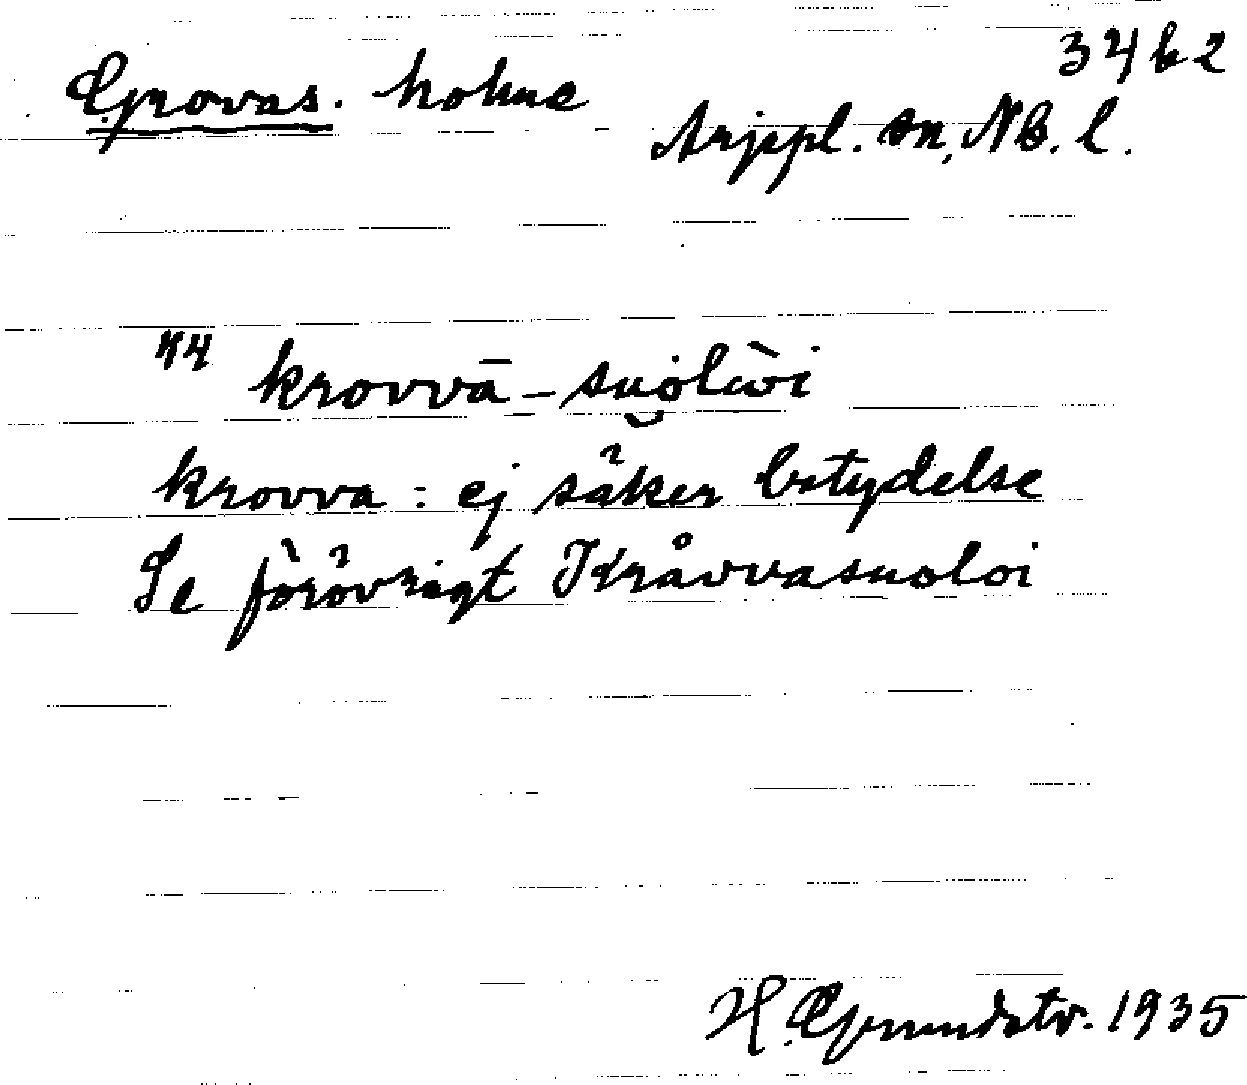 Grovas. holme
34 b 2
Arjepl. sn, NB. l.
44 krovvā - suo̯lùi
krovva : ej säker betydelse
Se förövrigt Kråvvasuoloi
H. Grundstr. 1935